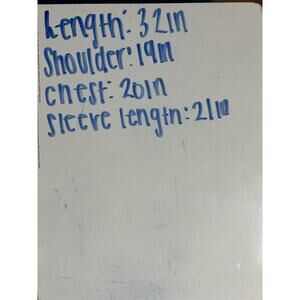 Length: 32in
Shoulder: 19in
chest: 20in
sleeve length: 21in